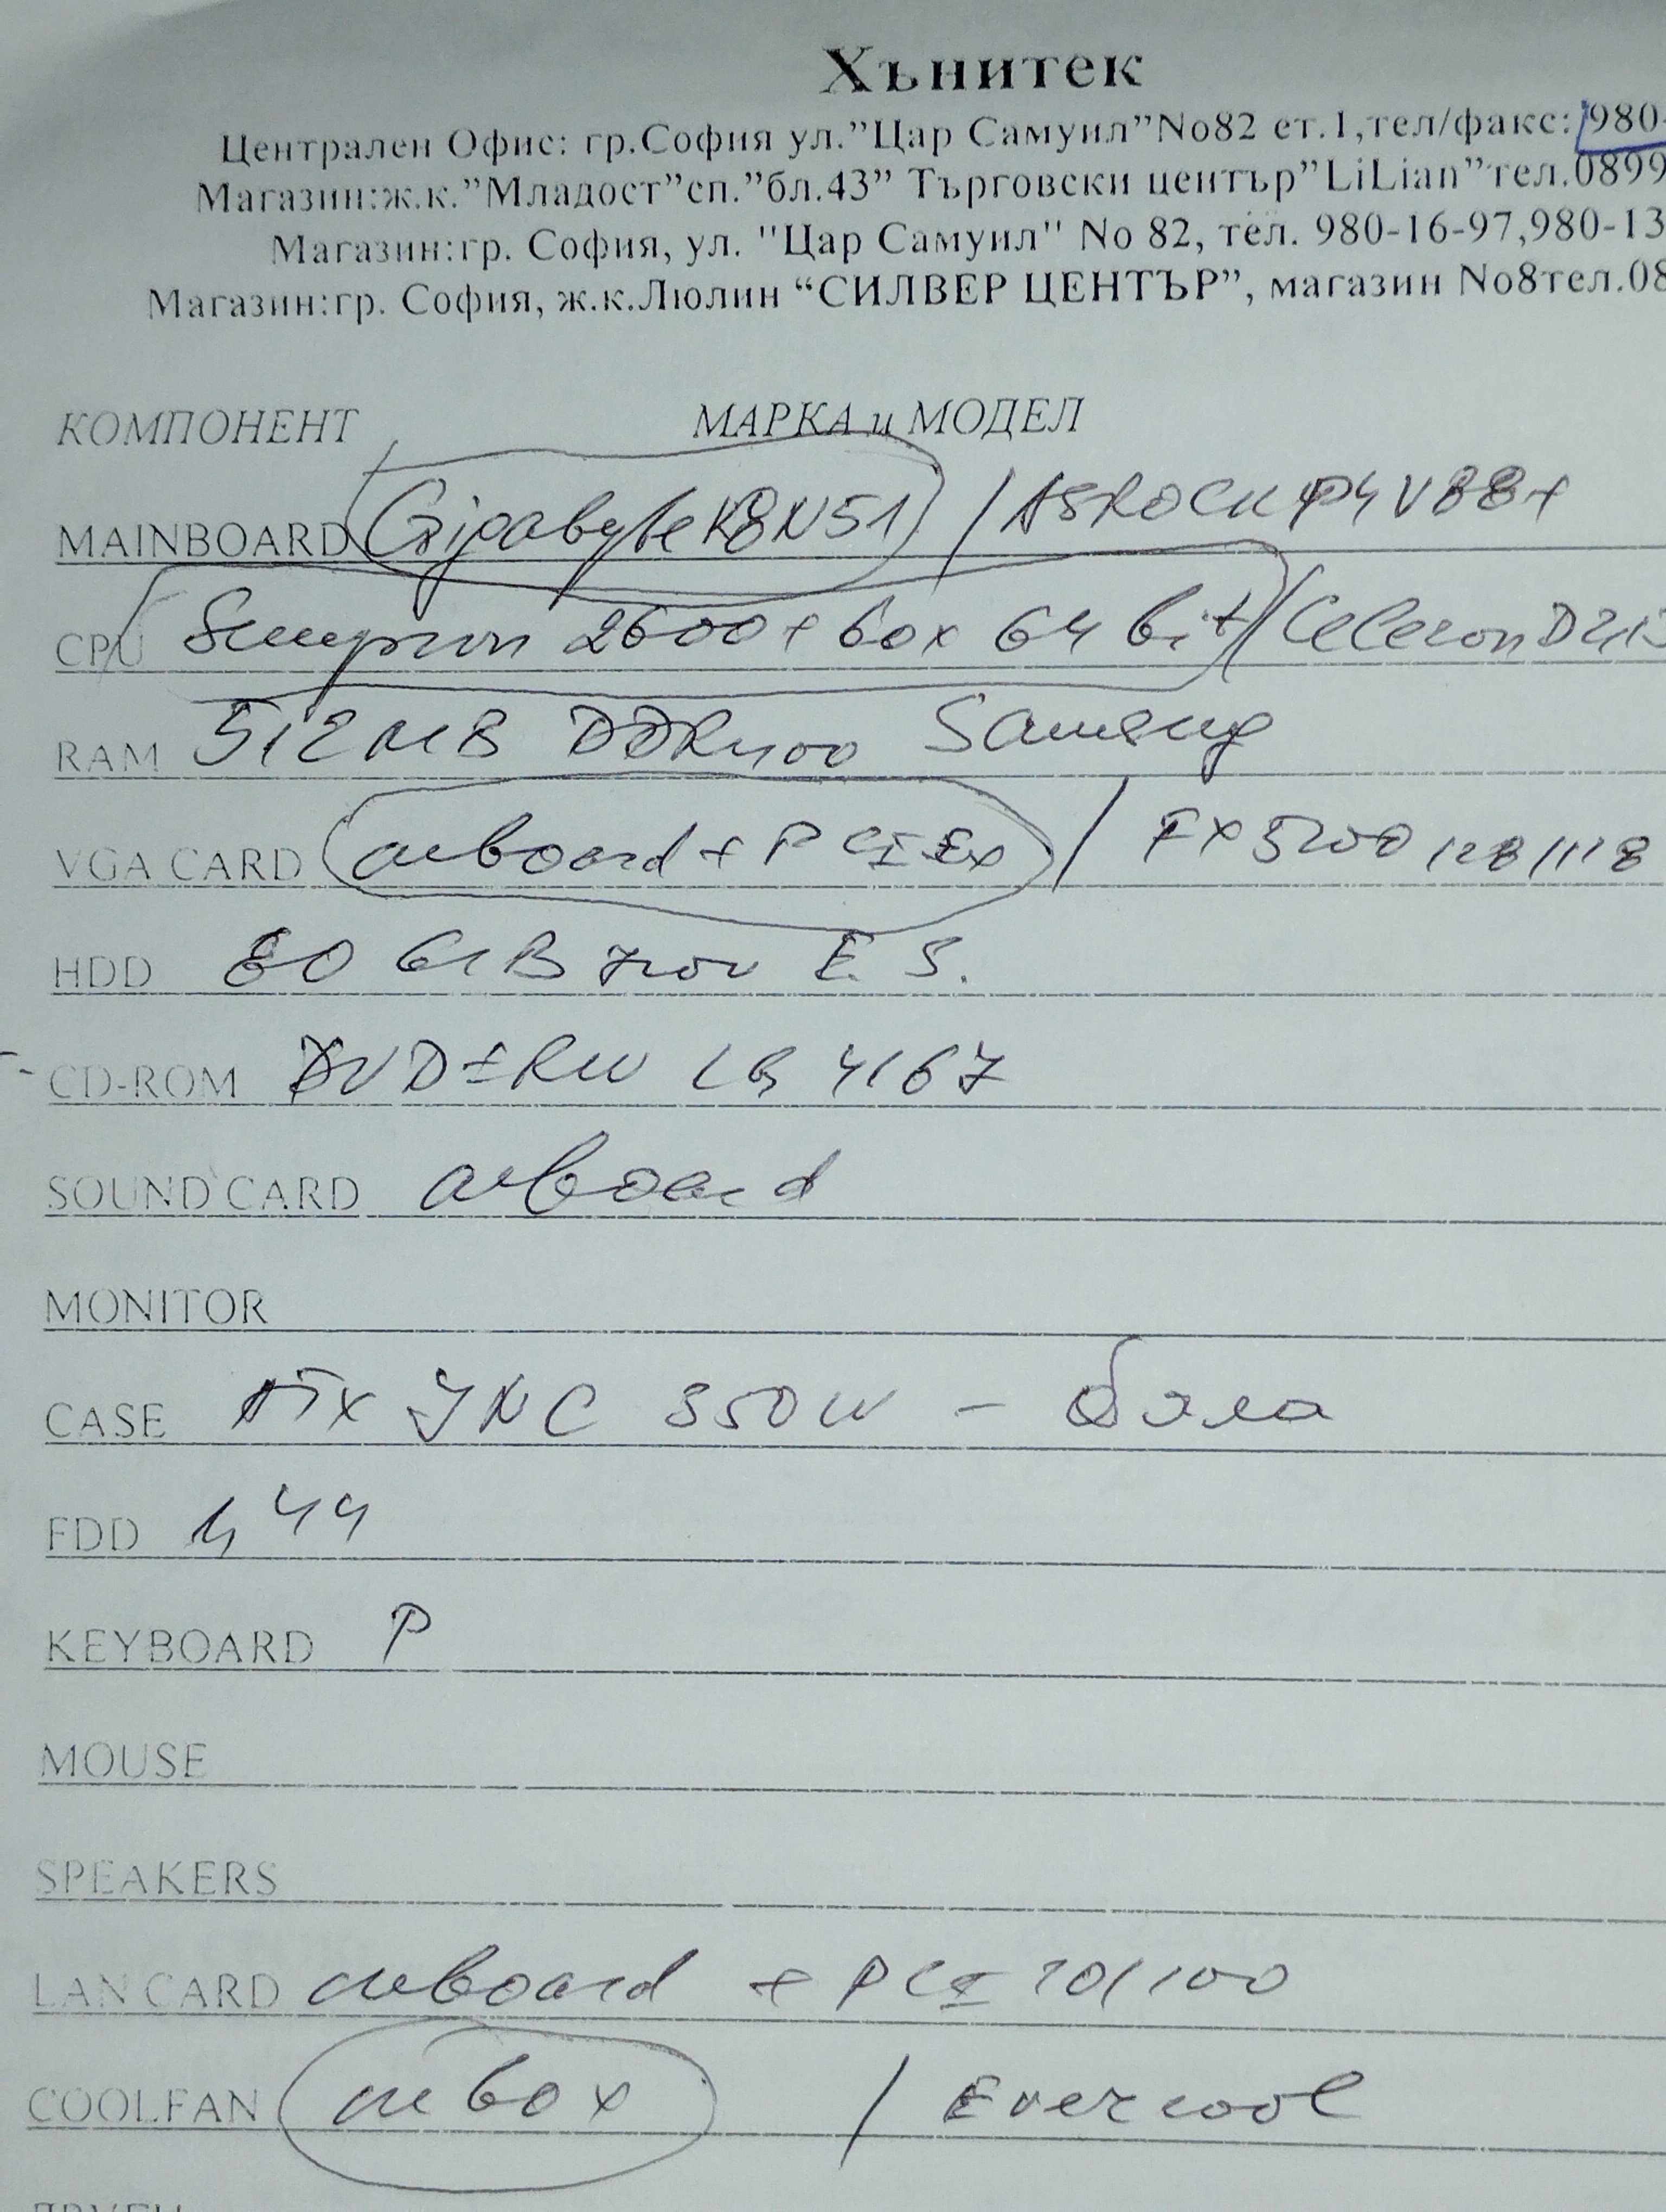 Хънитек
Централен Офис: гр.София ул."Цар Самуил"No82 ет.1,тел/факс: 980-
Магазин:ж.к."Младост"сп."бл.43" Търговски център"LiLian"тел.0899
Магазин:гр. София, ул. "Цар Самуил" No 82, тел. 980-16-97,980-13
Магазин:гр. София, ж.к.Люлин “СИЛВЕР ЦЕНТЪР”, магазин No8тел.08
КОМПОНЕНТ МАРКА и МОДЕЛ
MAINBOARD Gigabyte K8N51 / ASROCK P4V88+
CPU Sempron 2600+ box 64 bit / Celeron D
RAM 512MB DDR400 Samsung
VGA CARD onboard + PCI Ex / FX5200 128/118
HDD 80 GB 7200 E. S.
CD-ROM DVD±RW LG 4167
SOUND CARD onboard
MONITOR
CASE ATX JNC 350W - бяла
FDD 1,44
KEYBOARD P
MOUSE
SPEAKERS
LAN CARD onboard + PCI 10/100
COOLFAN in box / Evercool